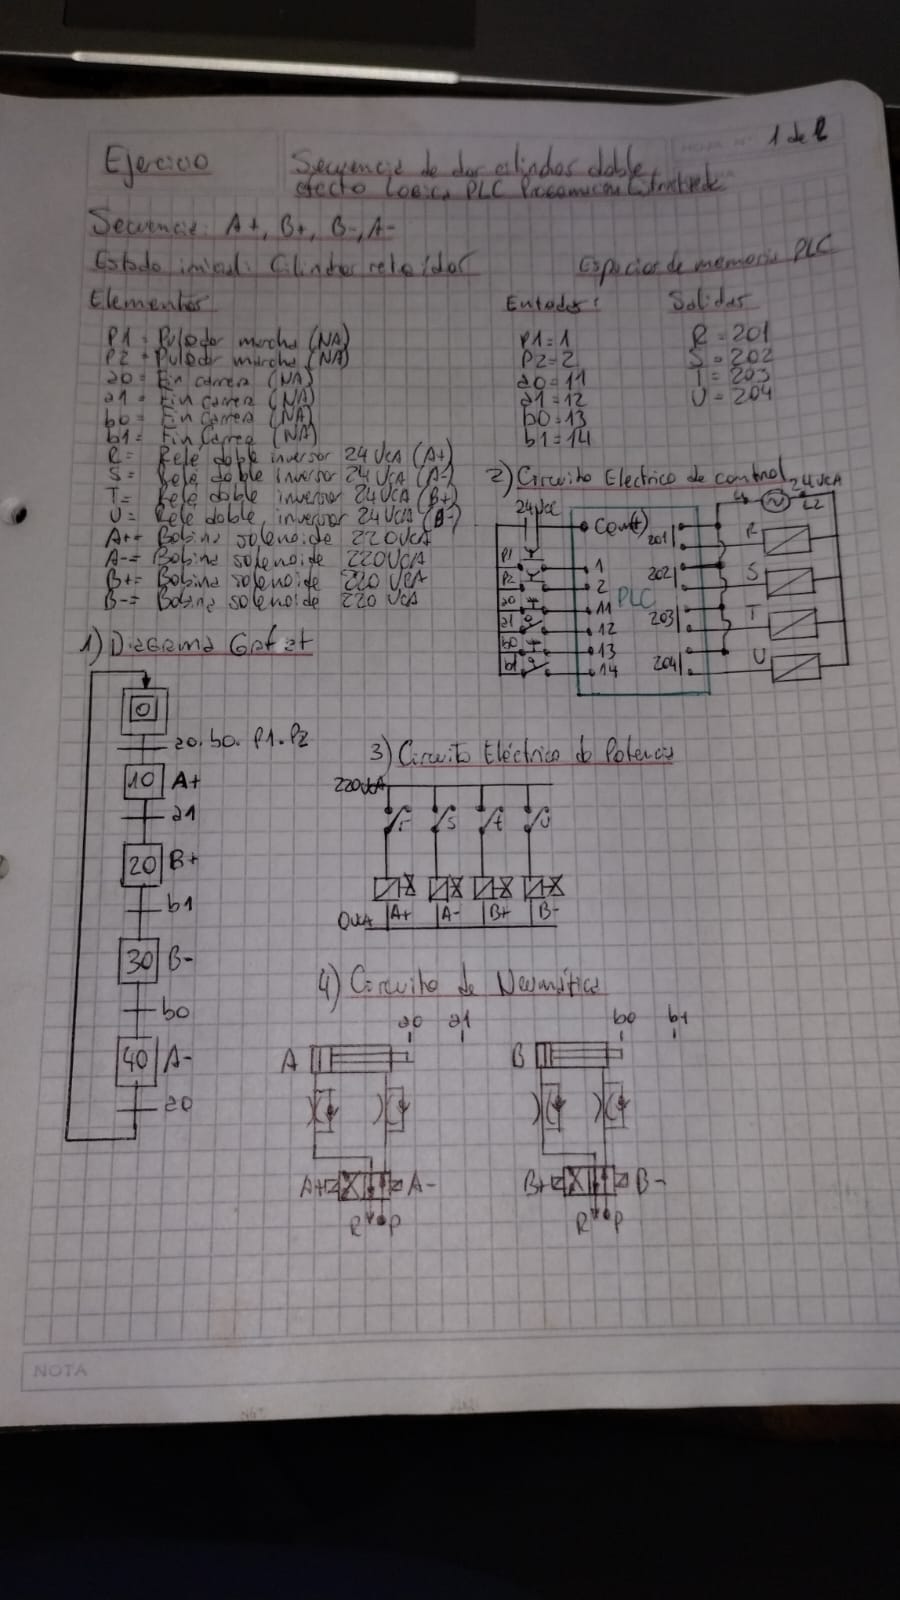 1 de 2
Ejercicio
Secuencia de dos cilindros doble
efecto Logica PLC Programacion Estructurada
Secuencia: A+, B+, B-, A-
Estado inicial: Cilindros retraidos
Espacios de memoria PLC
Elementos
Entradas:
Salidas
P1 = Pulsador marcha (NA)
P2 = Pulsador marcha (NA)
a0 = Fin carrera (NA)
a1 = Fin carrera (NA)
b0 = Fin Carrera (NA)
b1 = Fin Carrera (NA)
R = Relé doble inversor 24 VCA (A+)
S = Relé doble inversor 24 VCA (A-)
T = Relé doble inversor 24 VCA (B+)
U = Relé doble inversor 24 VCA (B-)
A+= Bobina solenoide 220VCA
A-= Bobina solenoide 220VCA
B+= Bobina solenoide 220 VCA
B-= Bobina solenoide 220 VCA
P1=1
P2=2
a0=11
a1=12
b0=13
b1=14
R=201
S=202
T=203
U=204
2) Circuito Electrico de control
24VCC
24VCA
L2
P1
P2
a0
a1
b0
b1
Com(+)
1
2
11
12
13
14
PLC
201
202
203
204
R
S
T
U
1) Diagrama Grafcet
0
a0.b0.P1.P2
10 A+
a1
20 B+
b1
30 B-
b0
40 A-
a0
3) Circuito Eléctrico de Potencia
220VCA
r s t u
0VCA
A+ A- B+ B-
4) Circuito de Neumática
a0 a1 b0 b1
A B
A+ A- B+ B-
R P R P
NOTA